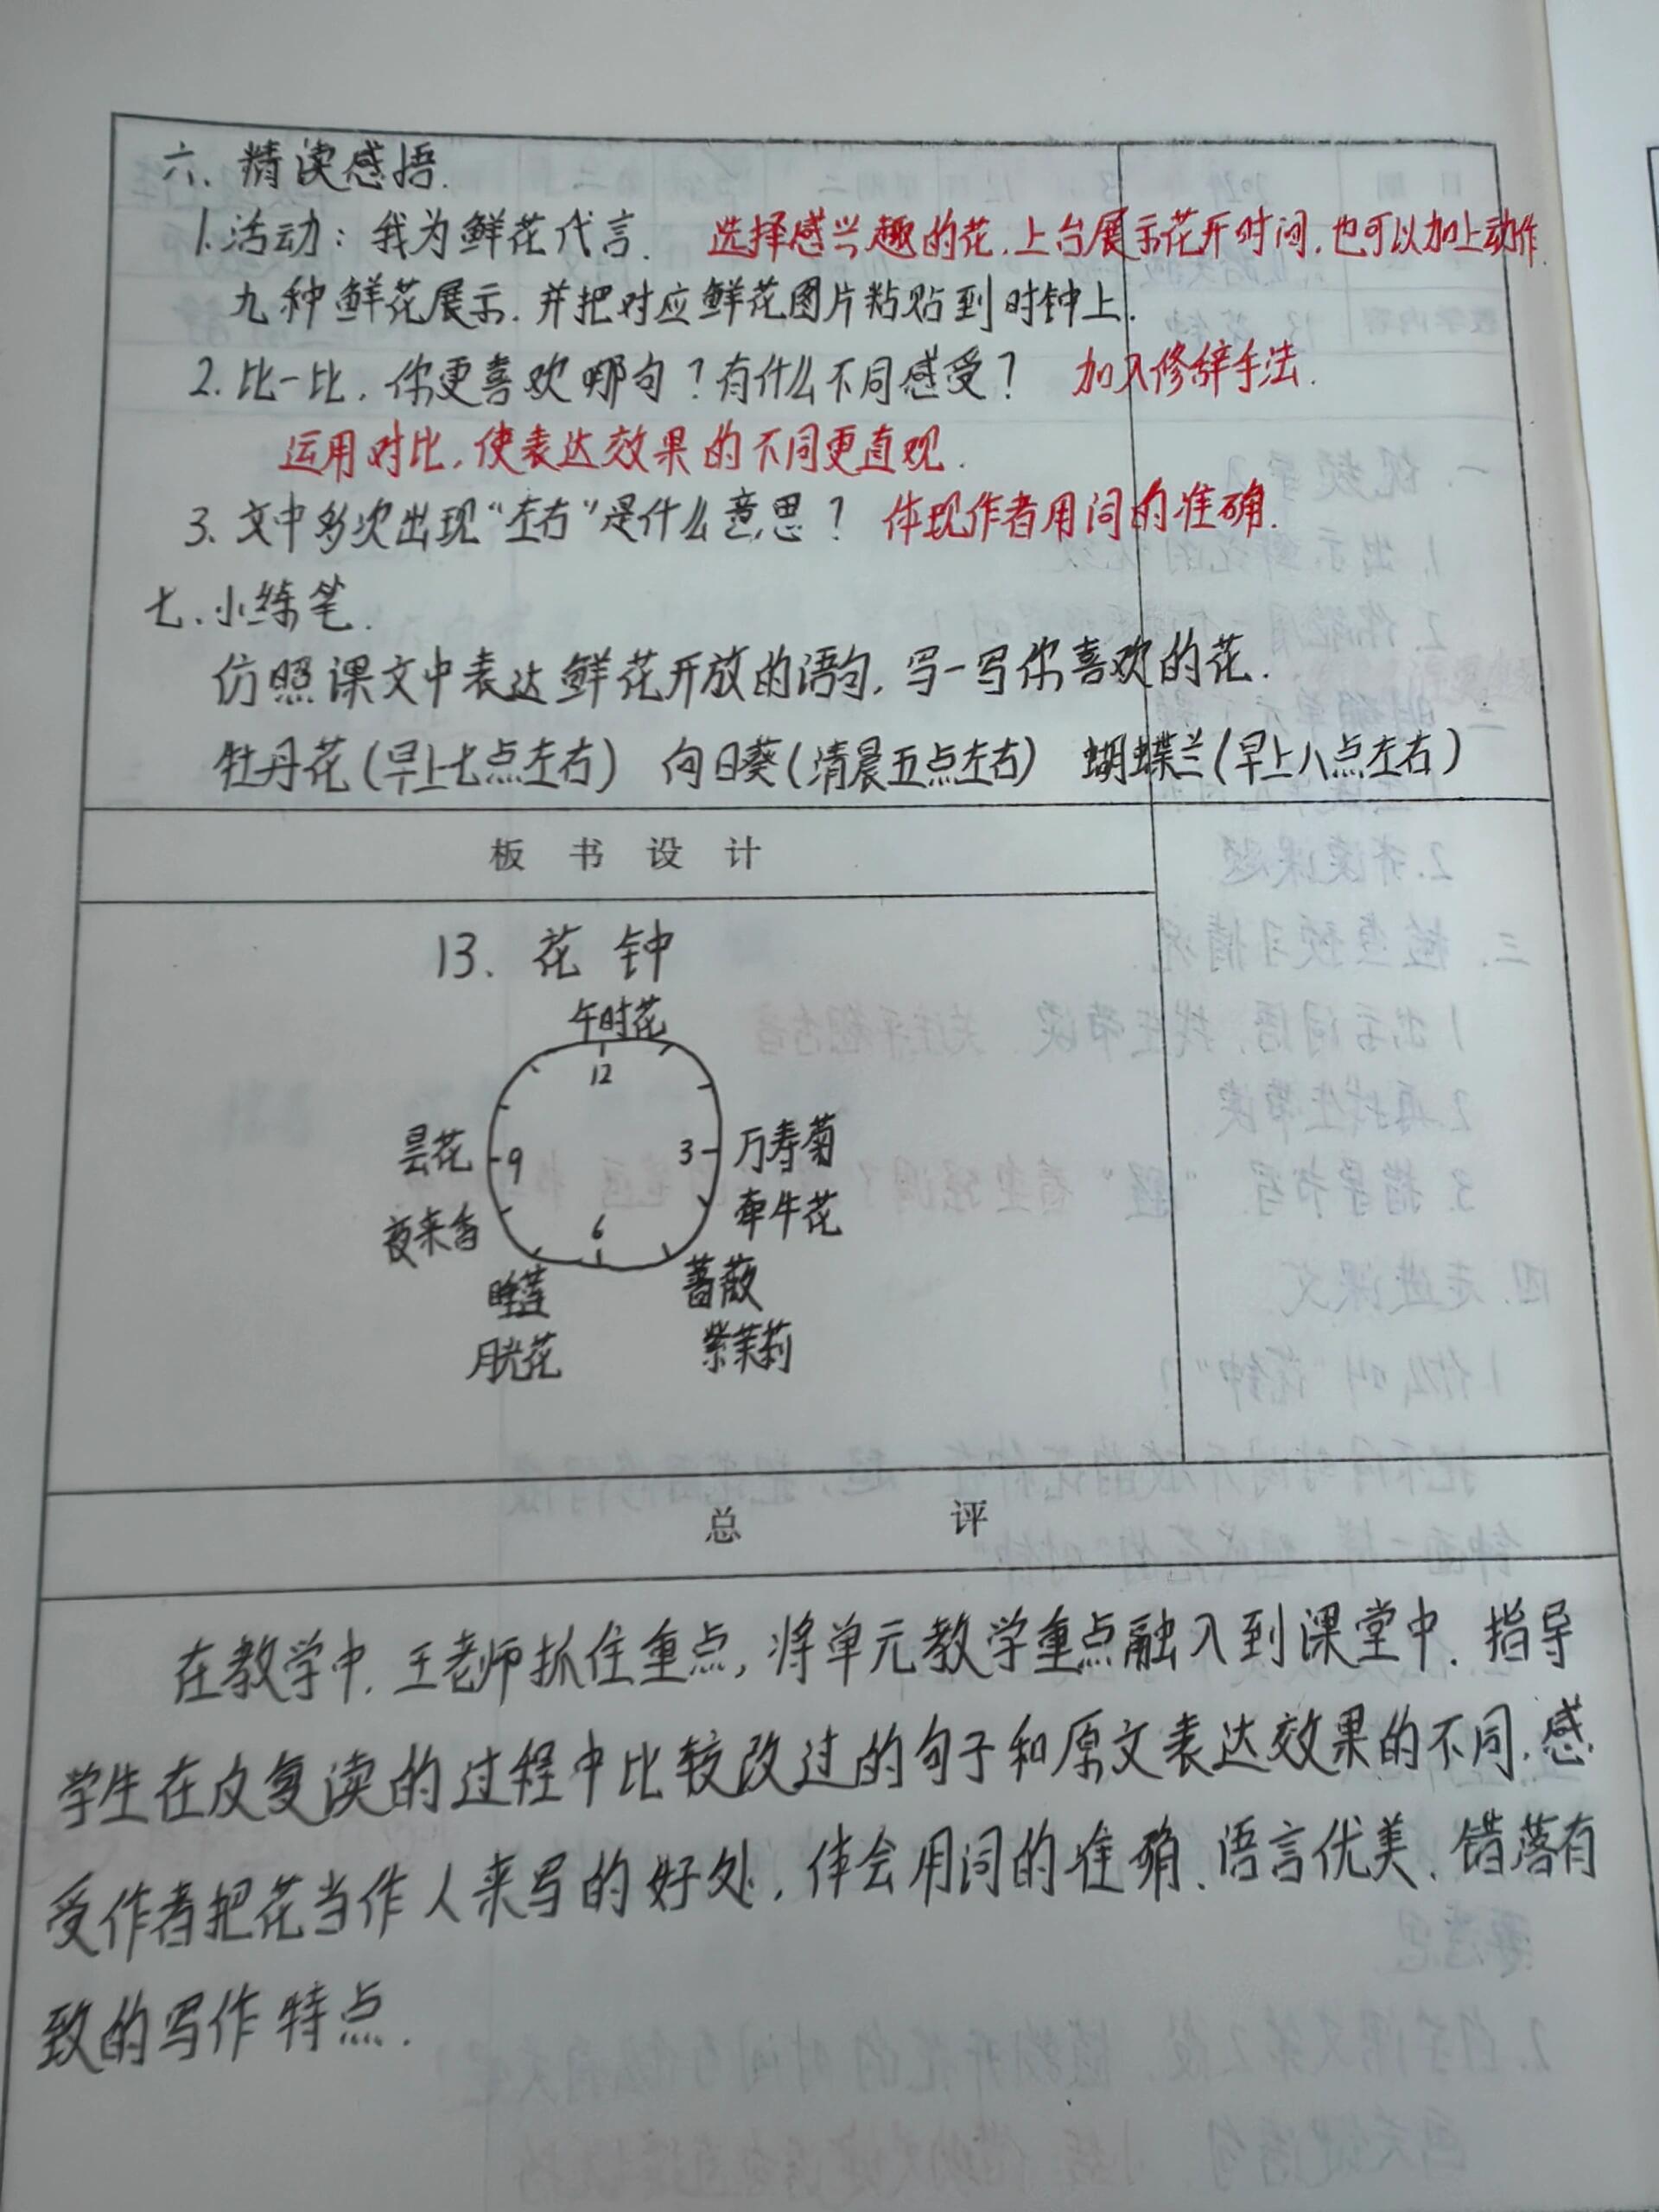 六、精读感悟.
1.活动：我为鲜花代言. 选择感兴趣的花,上台展示花开时间,也可以加上动作.
九种鲜花展示.并把对应鲜花图片粘贴到时钟上.
2.比一比,你更喜欢哪句？有什么不同感受？ 加入修辞手法.
运用对比,使表达效果的不同更直观.
3、文中多次出现“左右”是什么意思？ 体现作者用词的准确.
七、小练笔.
仿照课文中表达鲜花开放的语句,写一写你喜欢的花.
牡丹花(早上七点左右) 向日葵(清晨五点左右) 蝴蝶兰(早上八点左右)
板书设计
13、花钟
午时花
12
昙花 9 3 万寿菊
夜来香 6 牵牛花
睡莲 蔷薇
月光花 紫茉莉
总评
在教学中,王老师抓住重点,将单元教学重点融入到课堂中.指导
学生在反复读的过程中比较改过的句子和原文表达效果的不同,感
受作者把花当作人来写的好处,体会用词的准确、语言优美、错落有
致的写作特点.